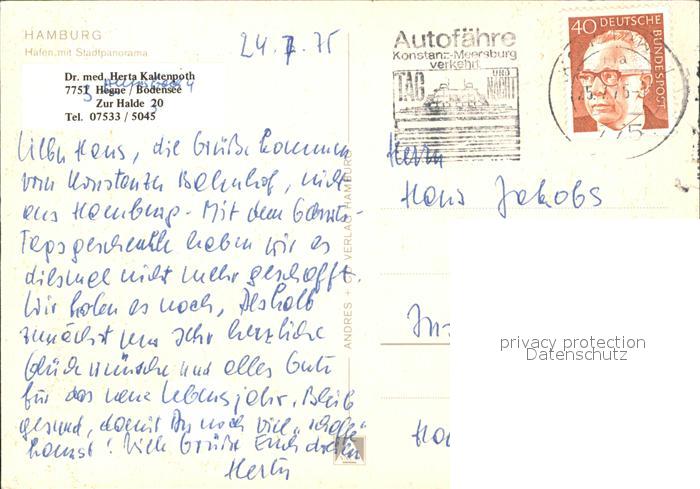 HAMBURG
Hafen mit Stadtpanorama
24.7.75
Dr. med. Herta Kaltenpoth
7751 Hegne / Bodensee
Zur Halde 20
Tel. 07533 / 5045
Lieber Hans, die Grüße kommen
vom Konstanzer Bahnhof, nicht
aus Hamburg. Mit dem Geburts-
tagsgeschenk haben wir es
diesmal nicht mehr geschafft.
Wir holen es nach, deshalb
zunächst nur sehr herzliche
Glückwünsche und alles Gute
für das neue Lebensjahr. Bleib
gesund, damit Du noch viel "schaffe"
kannst! Viele Grüße Euch allen
Herta
ANDRES + CO VERLAG HAMBURG
Autofähre
Konstanz-Meersburg
verkehrt
TAG UND NACHT
40 DEUTSCHE BUNDESPOST
25.7.75
75
Herrn
Hans Jakobs
privacy protection
Datenschutz